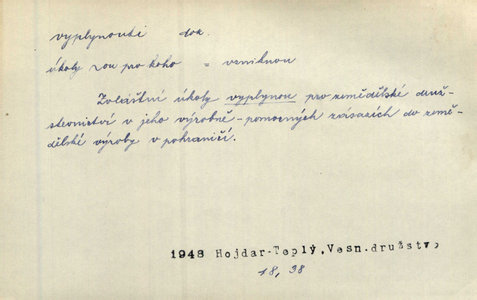 vyplynouti dok.
úkoly ~ou pro koho = vzniknou
Zvláštní úkoly vyplynou pro zemědělské druž-
stevnictví v jeho výrobně-pomocných zásazích do země-
dělské výroby v pohraničí.
1948 Hojdar-Teplý, Vesn.družstv,
18, 38